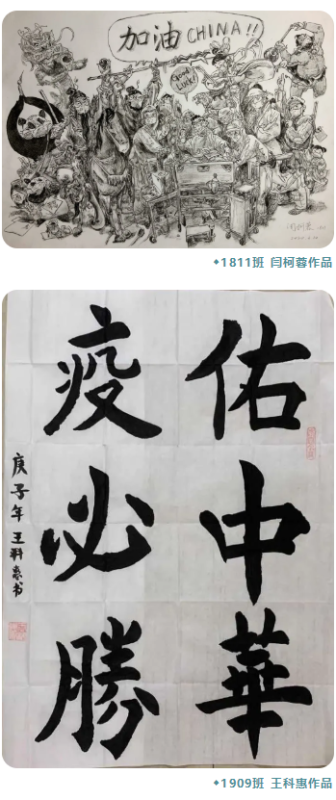 加油 CHINA!!
Good
Luck!
◆1811班 闫柯蓉作品
佑中華
疫必勝
庚子年 王科惠书
◆1909班 王科惠作品